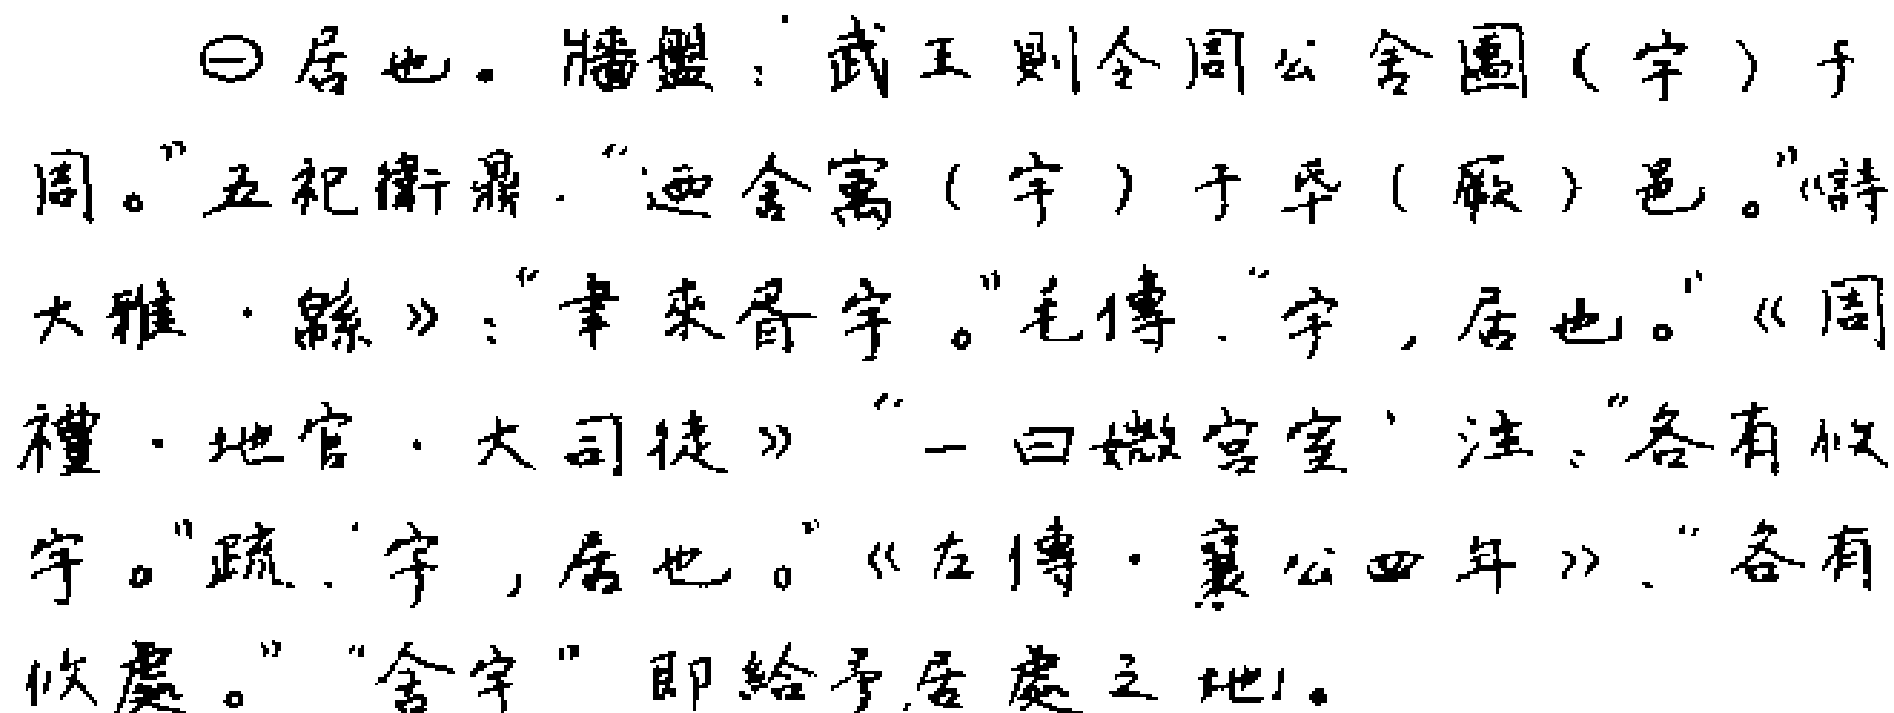 ㊀居也。牆盤：“武王則令周公舍圗（宇）于
周。”五祀衛鼎：“迺舍寓（宇）于氒（厥）邑。”《詩
大雅·緜》：“聿來胥宇。”毛傳：“宇，居也。”《周
禮·地官·大司徒》“一曰媺宮室”注：“各有攸
宇。”疏：“宇，居也。”《左傳·襄公四年》：“各有
攸處。”“舍宇”即給予居處之地。